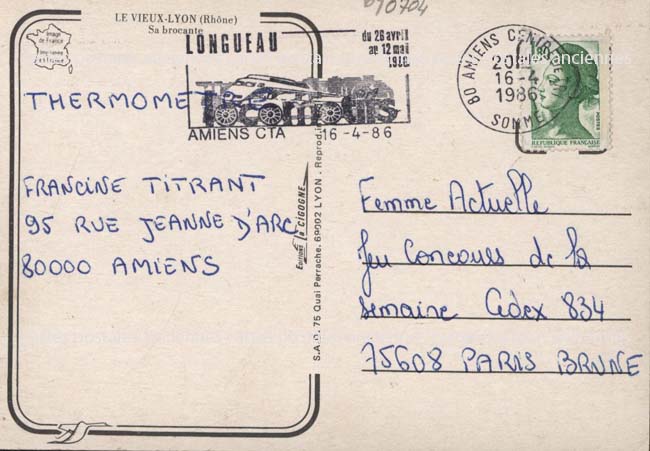 LE VIEUX-LYON (Rhône)
Sa brocante
Image
de France
THERMOMETRE
FRANCINE TITRANT
95 RUE JEANNE D'ARC
80000 AMIENS
LONGUEAU
du 26 avril
au 12 mai
AMIENS CTA 16-4-86
80 AMIENS CENTRE
16-4
1986
SOMME
1,80
POSTES
REPUBLIQUE FRANÇAISE
Editions la CIGOGNE
S.A.R. 75 Quai Perrache. 69002 LYON - Reprod. in
Femme Actuelle
Jeu Concours de la
semaine Cedex 834
75608 PARIS BRUNE